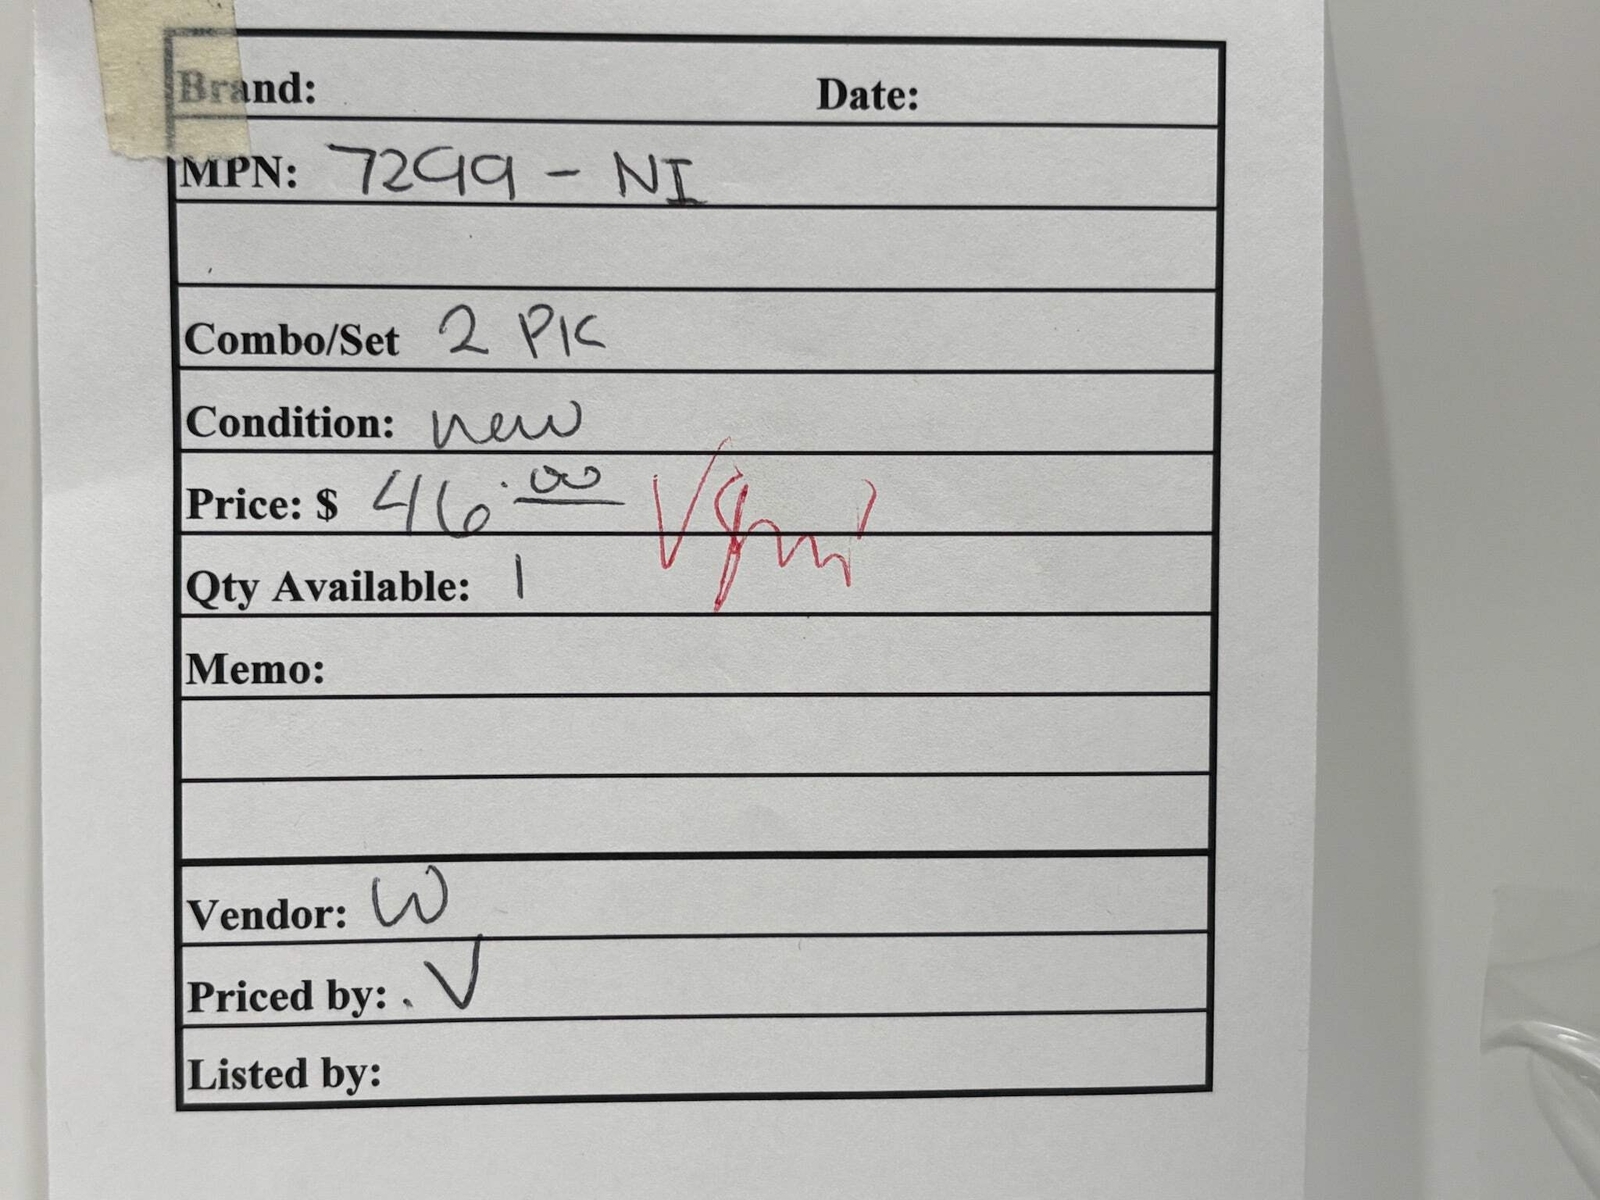 Brand: Date:
MPN: 7299 - NI
Combo/Set 2 PK
Condition: new
Price: $ 46.00
Qty Available: 1
Memo:
Vendor: W
Priced by: . V
Listed by: